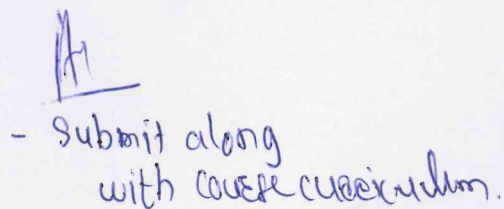 - Submit along
with course curriculum.